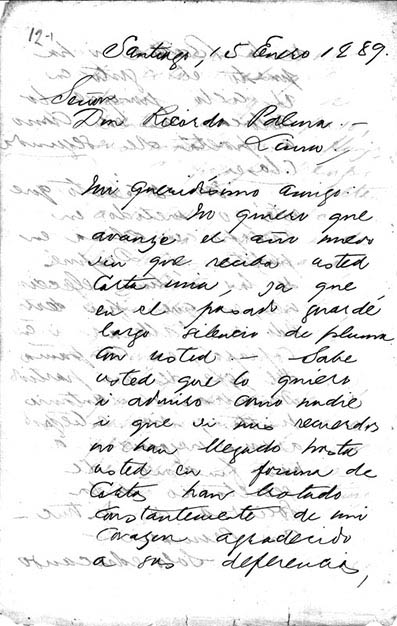 12-1
Santiago, 15 Enero 1889.
Señor
Don Ricardo Palma.—
Lima,
Mi queridísimo amigo:
No quiero que
avanze el año nuevo
sin que reciba usted
carta mia, ya que
en el pasado guardé
largo silencio de pluma
con usted.— Sabe
usted que lo quiero
i admiro como nadie
i que si mis recuerdos
no han llegado hasta
usted en forma de
cartas han brotado
constantemente de mi
corazon agradecido
a sus deferencias,